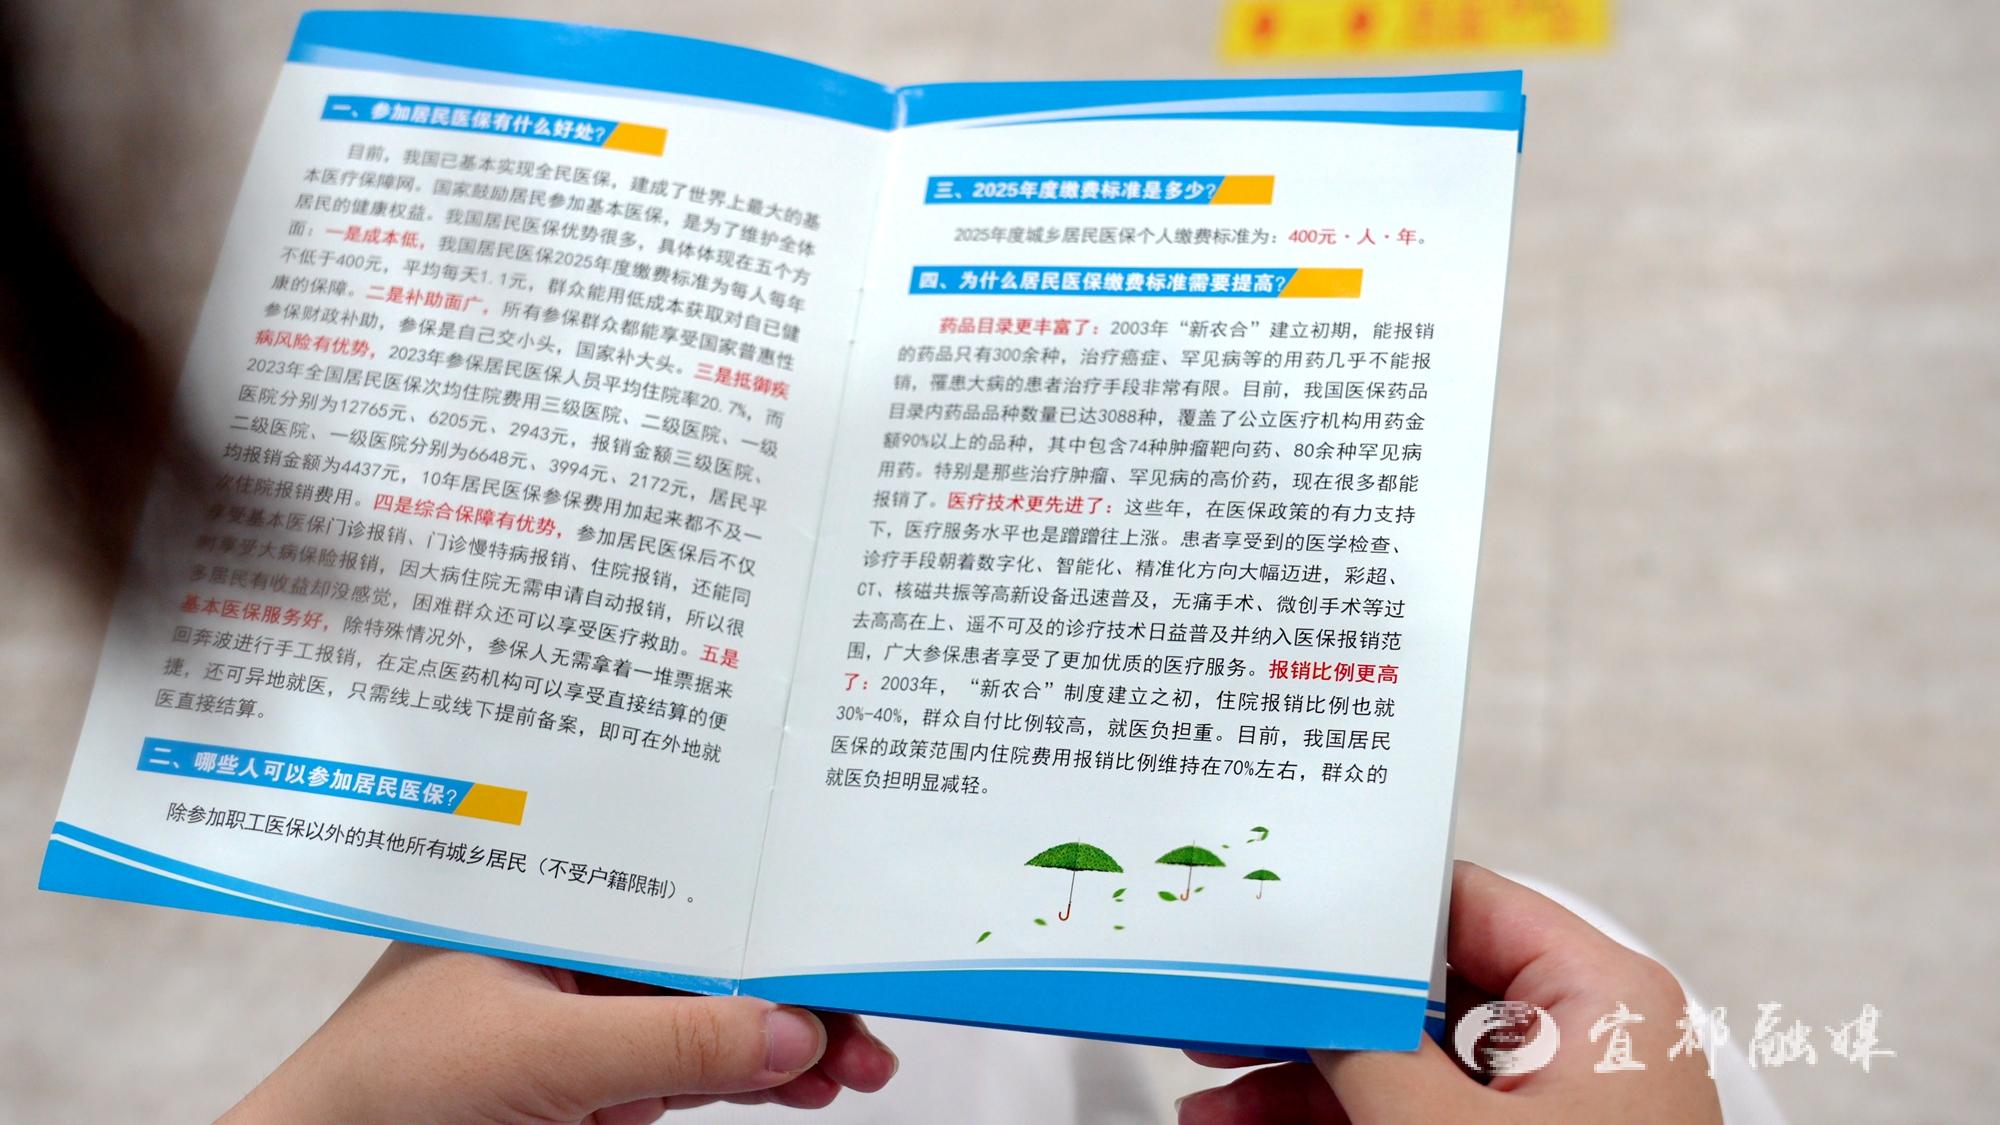 一、参加居民医保有什么好处?
目前，我国已基本实现全民医保，建成了世界上最大的基
本医疗保障网。国家鼓励居民参加基本医保，是为了维护全体
居民的健康权益。我国居民医保优势很多，具体体现在五个方
面：一是成本低，我国居民医保2025年度缴费标准为每人每年
不低于400元，平均每天1.1元，群众能用低成本获取对自己健
康的保障。二是补助面广，所有参保群众都能享受国家普惠性
参保财政补助，参保是自己交小头，国家补大头。三是抵御疾
病风险有优势，2023年参保居民医保人员平均住院率20.7%，而
2023年全国居民医保次均住院费用三级医院、二级医院、一级
医院分别为12765元、6205元、2943元，报销金额三级医院、
二级医院、一级医院分别为6648元、3994元、2172元，居民平
均报销金额为4437元，10年居民医保参保费用加起来都不及一
次住院报销费用。四是综合保障有优势，参加居民医保后不仅
享受基本医保门诊报销、门诊慢特病报销、住院报销，还能同
时享受大病保险报销，因大病住院无需申请自动报销，所以很
多居民有收益却没感觉，困难群众还可以享受医疗救助。五是
基本医保服务好，除特殊情况外，参保人无需拿着一堆票据来
回奔波进行手工报销，在定点医药机构可以享受直接结算的便
捷，还可异地就医，只需线上或线下提前备案，即可在外地就
医直接结算。
二、哪些人可以参加居民医保?
除参加职工医保以外的其他所有城乡居民（不受户籍限制）。
三、2025年度缴费标准是多少?
2025年度城乡居民医保个人缴费标准为：400元·人·年。
四、为什么居民医保缴费标准需要提高?
药品目录更丰富了：2003年“新农合”建立初期，能报销
的药品只有300余种，治疗癌症、罕见病等的用药几乎不能报
销，罹患大病的患者治疗手段非常有限。目前，我国医保药品
目录内药品品种数量已达3088种，覆盖了公立医疗机构用药金
额90%以上的品种，其中包含74种肿瘤靶向药、80余种罕见病
用药。特别是那些治疗肿瘤、罕见病的高价药，现在很多都能
报销了。医疗技术更先进了：这些年，在医保政策的有力支持
下，医疗服务水平也是蹭蹭往上涨。患者享受到的医学检查、
诊疗手段朝着数字化、智能化、精准化方向大幅迈进，彩超、
CT、核磁共振等高新设备迅速普及，无痛手术、微创手术等过
去高高在上、遥不可及的诊疗技术日益普及并纳入医保报销范
围，广大参保患者享受了更加优质的医疗服务。报销比例更高
了：2003年，“新农合”制度建立之初，住院报销比例也就
30%-40%，群众自付比例较高，就医负担重。目前，我国居民
医保的政策范围内住院费用报销比例维持在70%左右，群众的
就医负担明显减轻。
宜都融媒